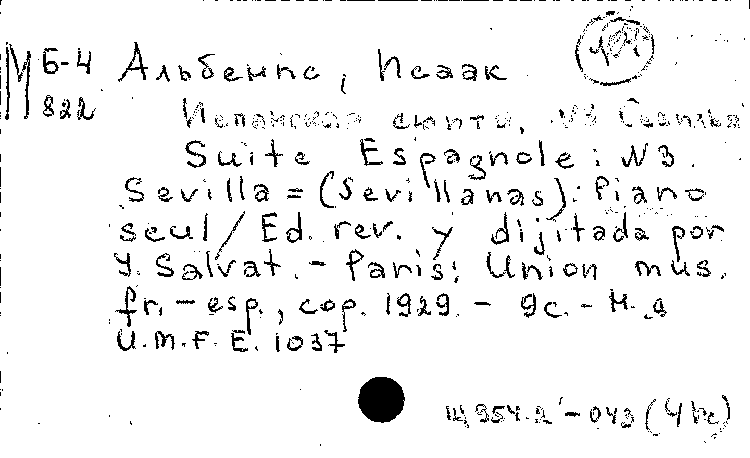 М Б-4 Альбенис, Исаак
822 Испанская сюита, №3 Севилья
Suite Espagnole: N3.
Sevilla = (Sevillanas): Piano
seul / Ed. rev. y dijitada por
Y. Salvat. - Paris: Union mus.
fr. - esp., cop. 1929. - 9с. - Н.д
U.M.F.E. 1037
Щ954.2 - 043 (4Ис)